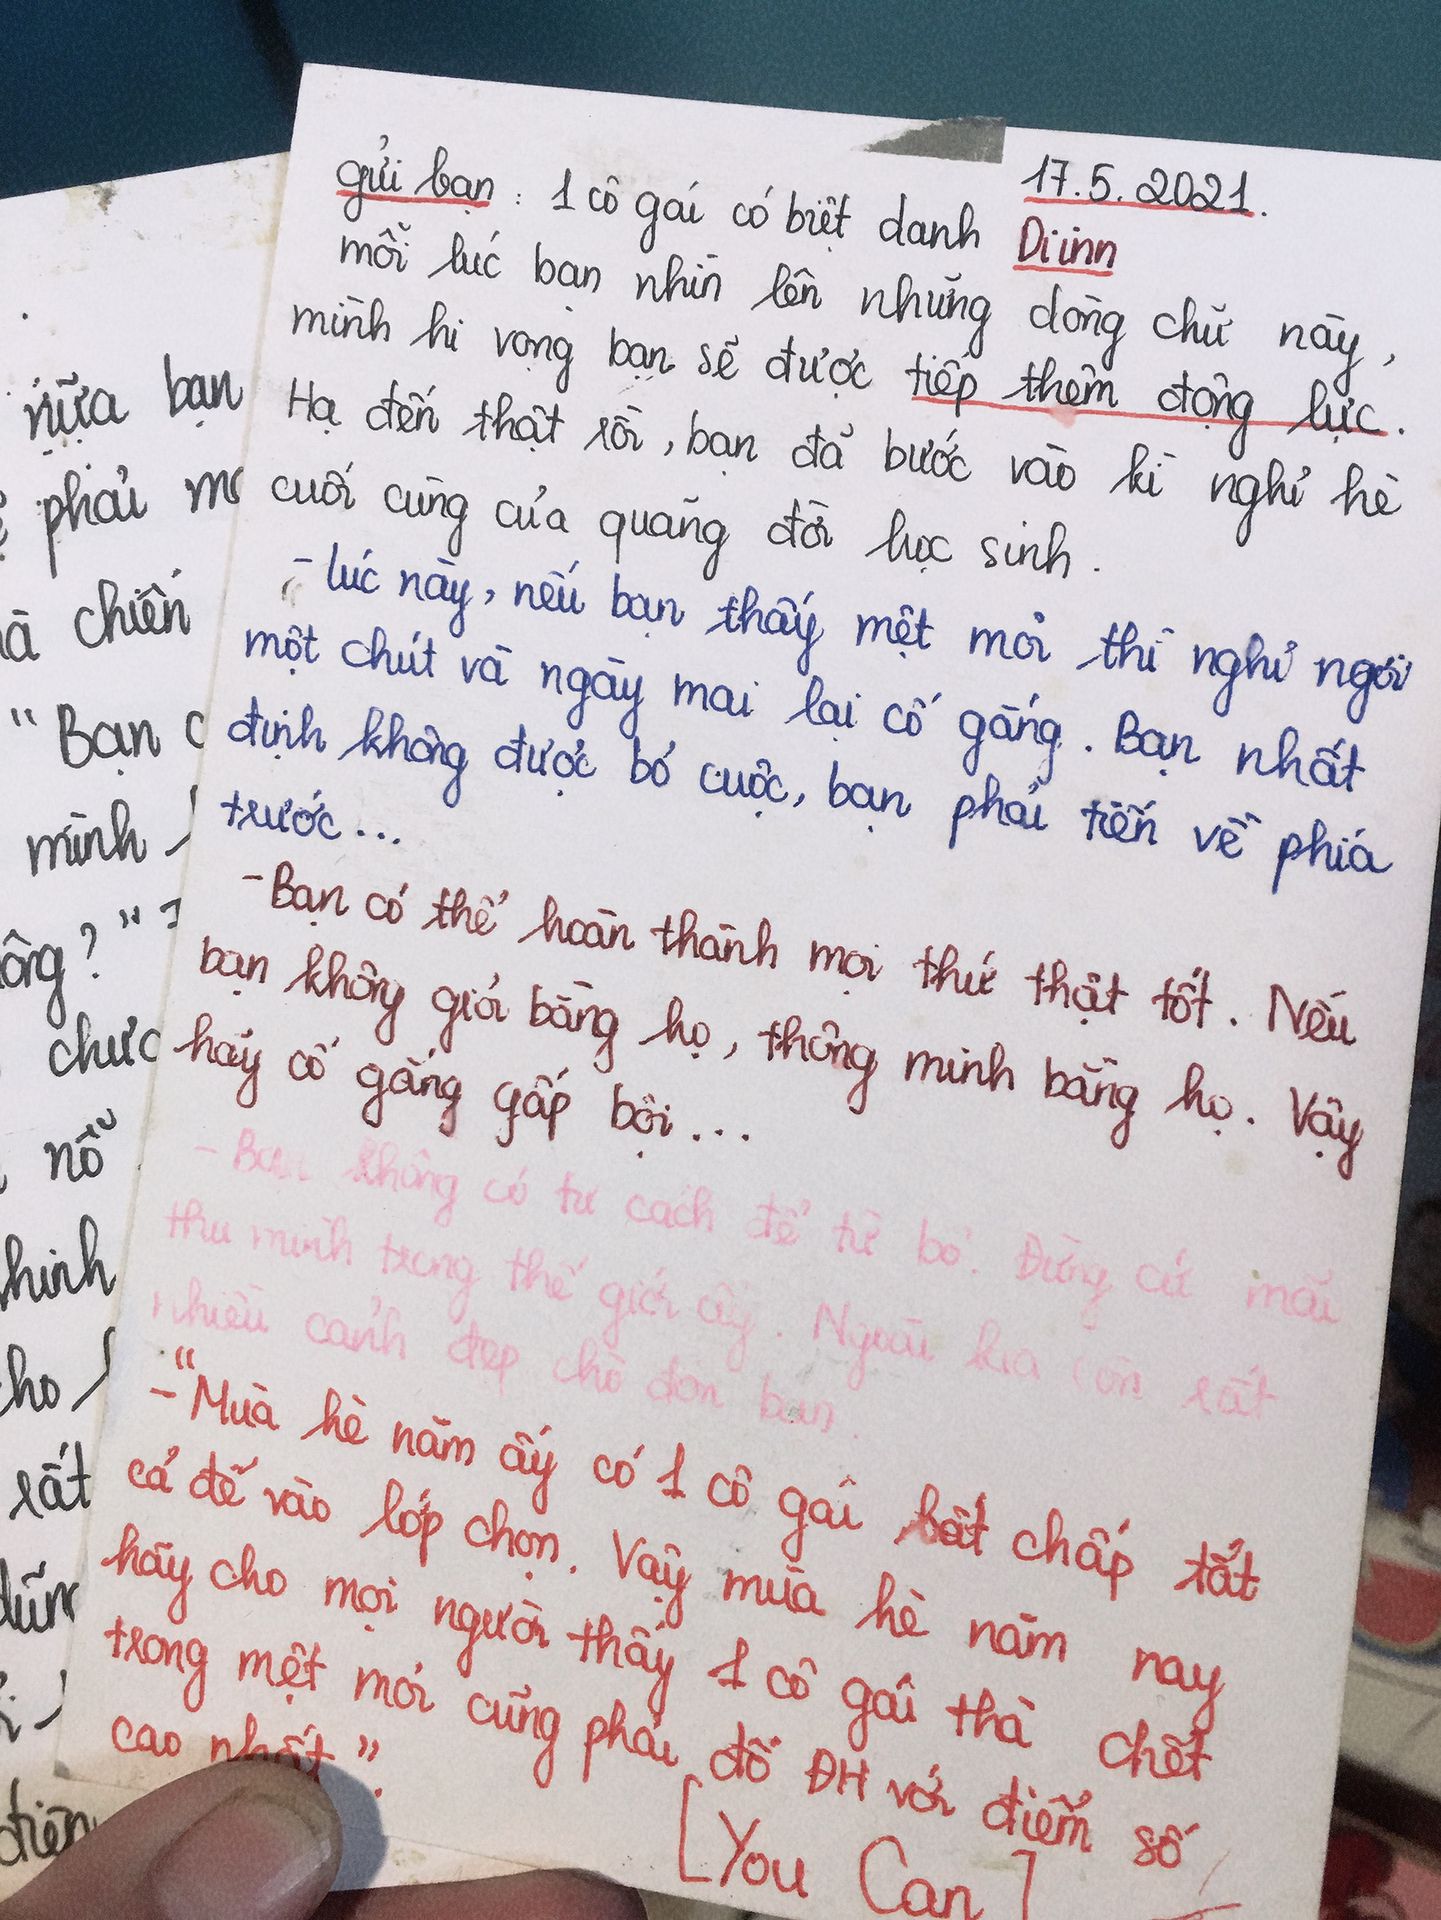 17.5.2021.
gửi bạn : 1 cô gái có biệt danh Diinn
mỗi lúc bạn nhìn lên những dòng chữ này,
mình hi vọng bạn sẽ được tiếp thêm động lực.
Hạ đến thật rồi, bạn đã bước vào kì nghỉ hè
cuối cùng của quãng đời học sinh.
- lúc này, nếu bạn thấy mệt mỏi thì nghỉ ngơi
một chút và ngày mai lại cố gắng. Bạn nhất
định không được bỏ cuộc, bạn phải tiến về phía
trước...
- Bạn có thể hoàn thành mọi thứ thật tốt. Nếu
bạn không giỏi bằng họ, thông minh bằng họ. Vậy
hãy cố gắng gấp bội...
- Bạn không có tư cách để từ bỏ. Đừng cứ mãi
thu mình trong thế giới ấy. Ngoài kia còn rất
nhiều cảnh đẹp chờ đón bạn.
- "Mùa hè năm ấy có 1 cô gái bất chấp tất
cả để vào lớp chọn. Vậy mùa hè năm nay
hãy cho mọi người thấy 1 cô gái thà chết
trong mệt mỏi cũng phải đỗ ĐH với điểm số
cao nhất".
[You Can]
nữa bạn
phải
chiến
"Bạn
mình
?"
nỗ
rất